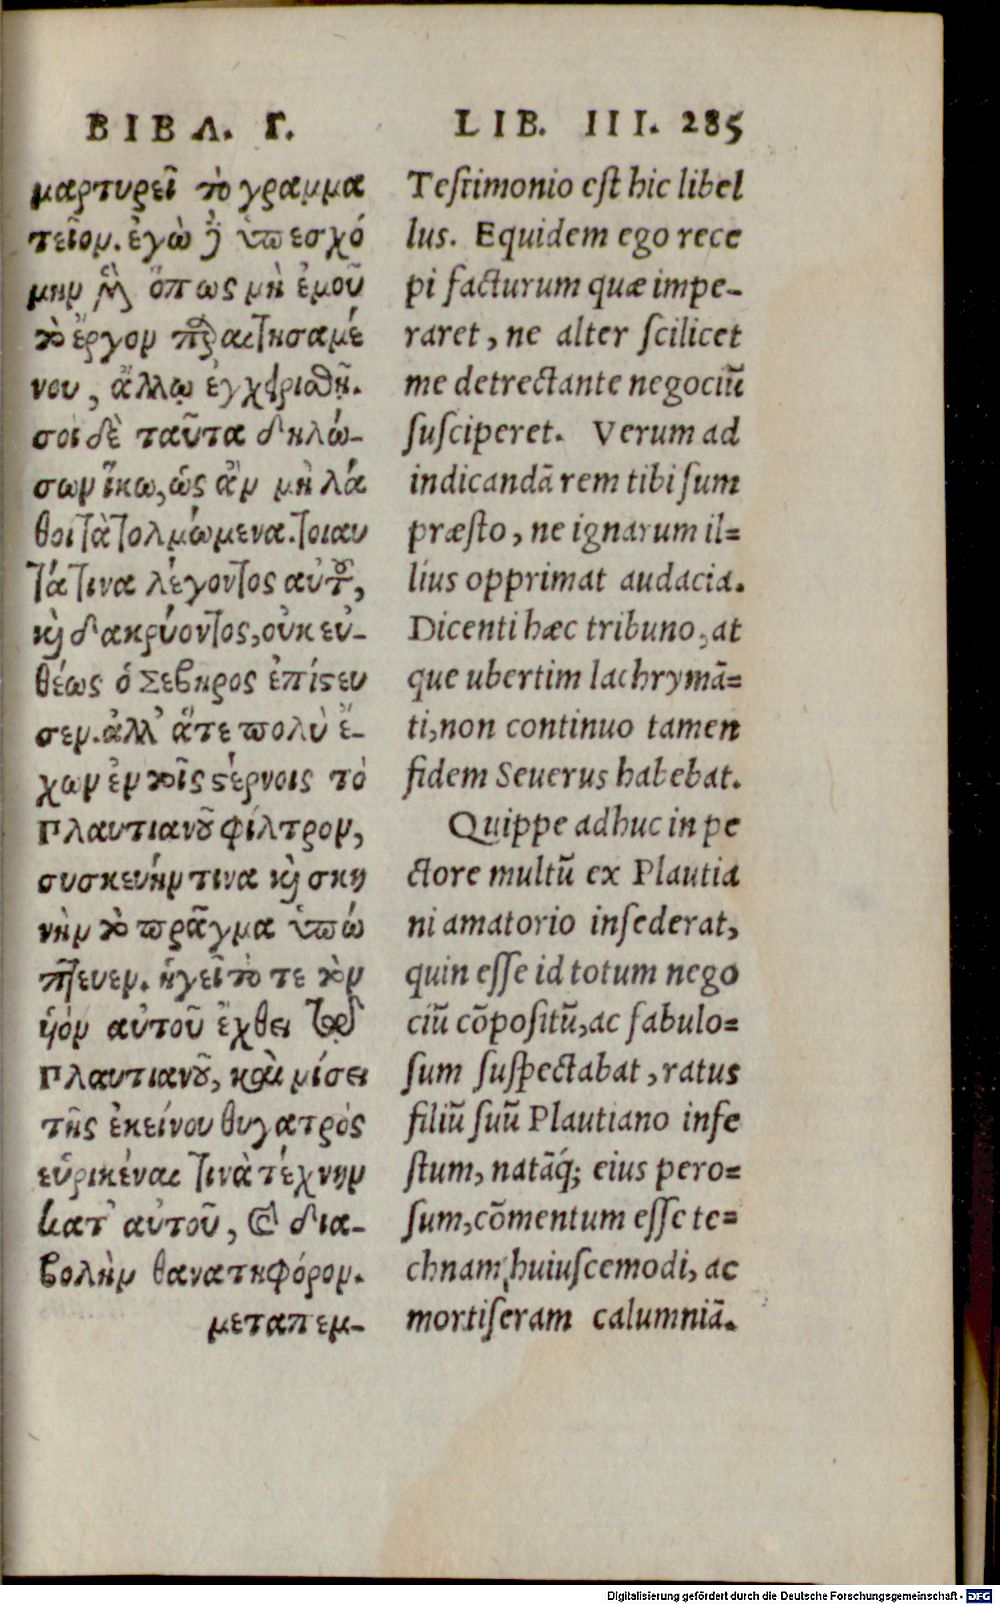 ΒΙΒΛ. Γ.
μαρτυρεῖ τὸ γραμμα
τεῖον. ἐγὼ δὲ ὑπεσχό
μην μὲν ὅπως μὴ ἐμοῦ
τὸ ἔργον παραιτησαμέ
νου, ἄλλῳ ἐγχειρισθῇ.
σοὶ δὲ ταῦτα δηλώ-
σων ἥκω, ὡς ἂν μὴ λά
θοι τὰ τολμώμενα. τοιαυ
τά τινα λέγοντος αὐτοῦ,
καὶ δακρύοντος, οὐκ εὐ-
θέως ὁ Σεβηρος ἐπίστευ
σεν. ἀλλ' ἅτε πολὺ ἔ-
χων ἐν τοῖς στέρνοις τὸ
Πλαυτιανοῦ φίλτρον,
συσκευήν τινα καὶ σκη
νὴν τὸ πρᾶγμα ὑπώ
πτευεν. ἡγεῖτό τε τὸν
υἱὸν αὐτοῦ ἔχθει τοῦ
Πλαυτιανοῦ, καὶ μίσει
τῆς ἐκείνου θυγατρὸς
εὑρικέναι τινὰ τέχνην
κατ' αὐτοῦ, καὶ δια-
βολὴν θανατηφόρον.
μεταπεμ-
LIB. III. 285
Testimonio est hic libel
lus. Equidem ego rece
pi facturum quæ impe-
raret, ne alter scilicet
me detrectante negociũ
susciperet. Verum ad
indicandã rem tibi sum
præsto, ne ignarum il=
lius opprimat audacia.
Dicenti hæc tribuno, at
que ubertim lachrymã=
ti, non continuo tamen
fidem Seuerus habebat.
Quippe adhuc in pe
ctore multũ ex Plautia
ni amatorio insederat,
quin esse id totum nego
ciũ cõpositũ, ac fabulo=
sum suspectabat, ratus
filiũ suũ Plautiano infe
stum, natãq́; eius pero=
sum, cõmentum esse te=
chnam huiuscemodi, ac
mortiferam calumniã.
Digitalisierung gefördert durch die Deutsche Forschungsgemeinschaft - DFG